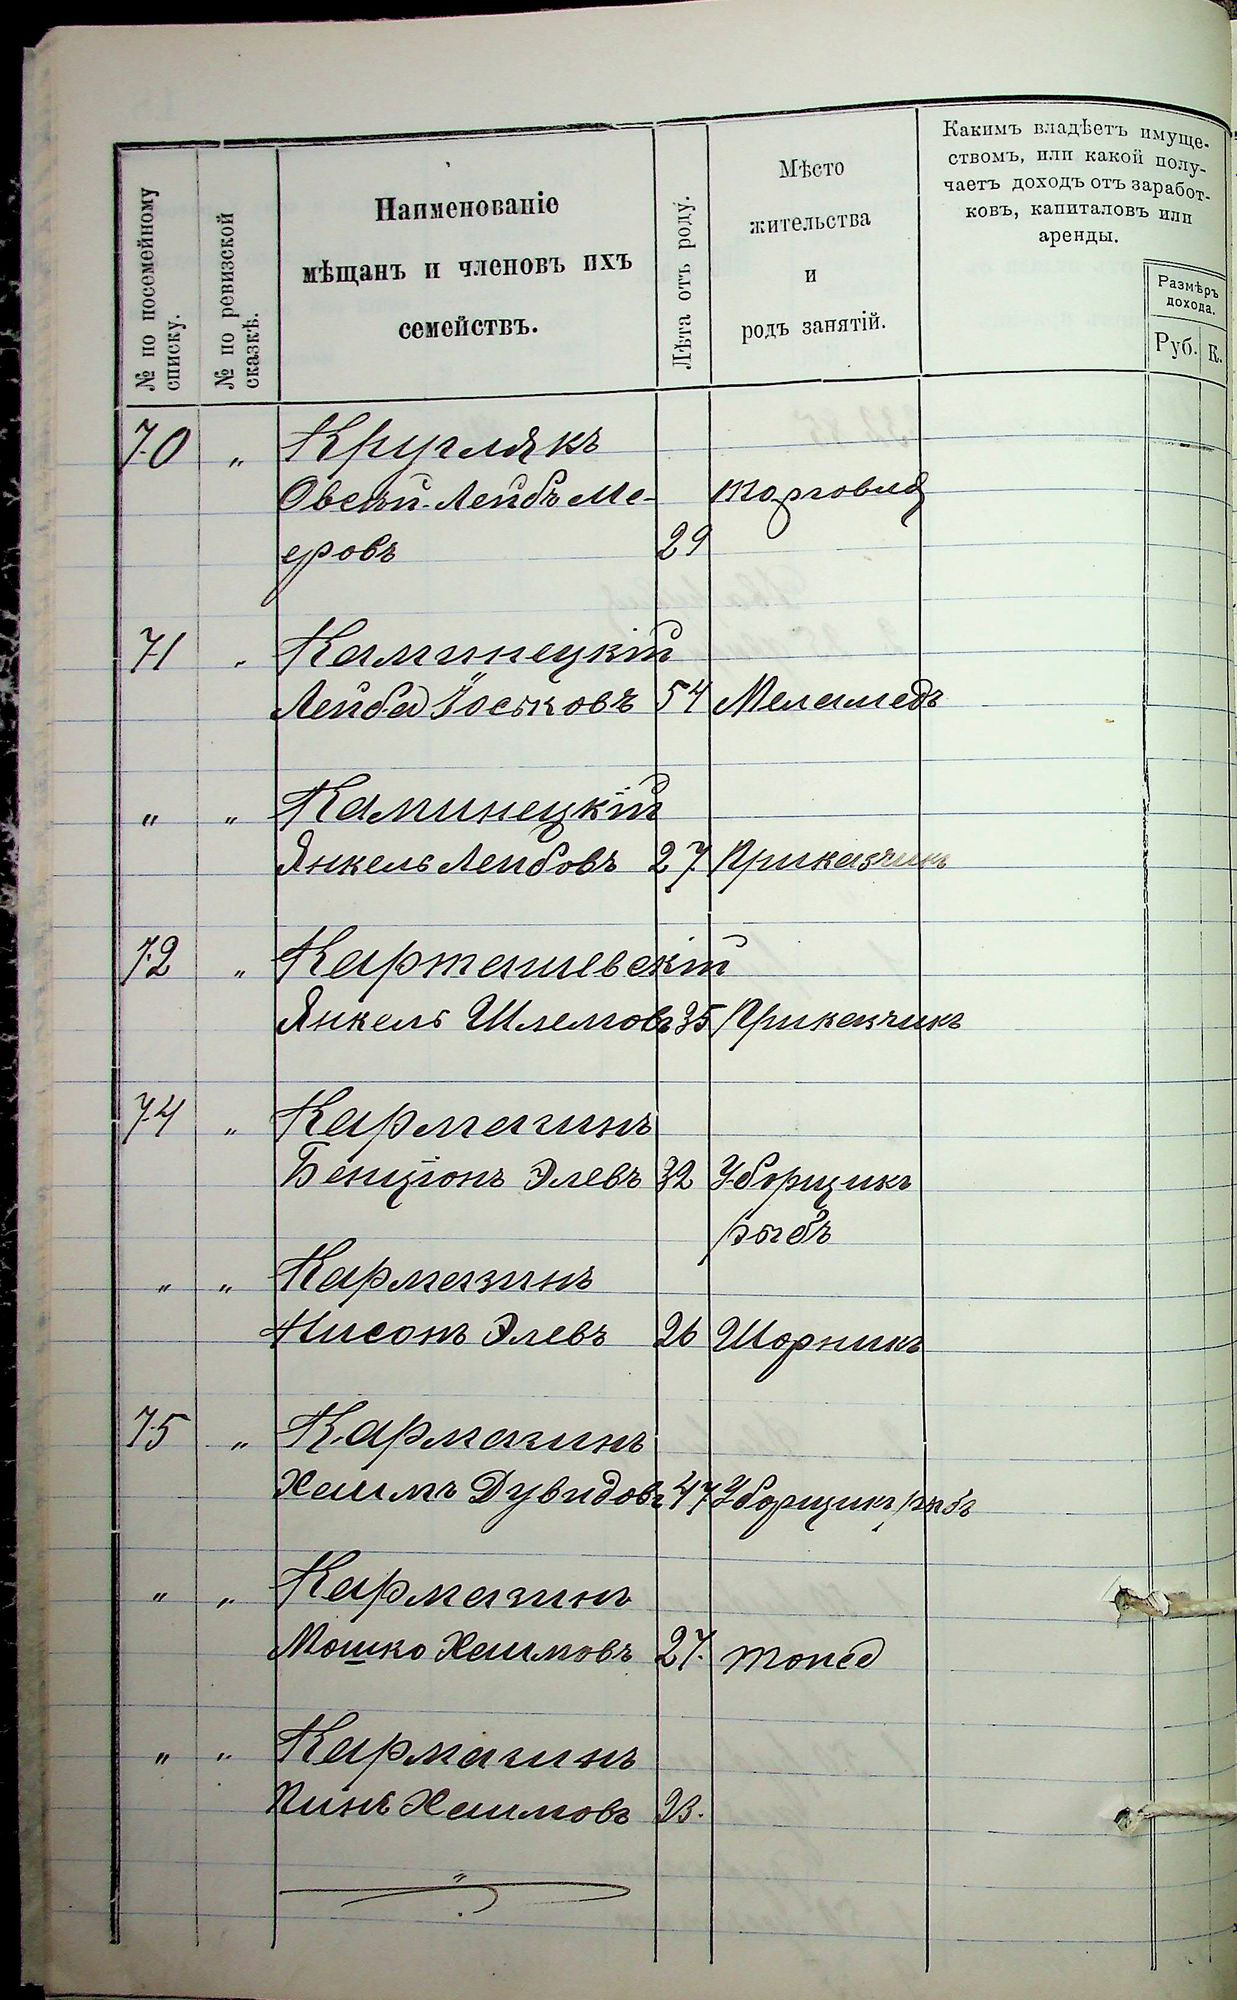 № по посемейному
списку.
№ по ревизской
сказкѣ.
Наименованіе
мѣщанъ и членовъ ихъ
семействъ.
Лѣта отъ роду.
Мѣсто
жительства
и
родъ занятій.
Какимъ владѣетъ имуще-
ствомъ, или какой полу-
чаетъ доходъ отъ заработ-
ковъ, капиталовъ или
аренды.
Размѣръ
дохода.
Руб. К.
70 „ Круглякъ
Овсей-Лейбъ Ме- торговля
еровъ 29
71 „ Каминецкій
Лейба Іоськовъ 54 Меламедъ
„ „ Каминецкій
Янкель Лейбовъ 27 Приказчикъ
72 „ Карташевскій
Янкель Шлемовъ 35 Приказчикъ
74 „ Кармазинъ
Бенціонъ Элевъ 32 Уборщикъ
рыбъ
„ „ Кармазинъ
Нисонъ Элевъ 26 Шорникъ
75 „ Кармазинъ
Хаимъ Дувидовъ 47 Уборщикъ рыбъ
„ „ Кармазинъ
Мошко Хаимовъ 27. тоже
„ „ Кармазинъ
Пинь Хаимовъ 23.